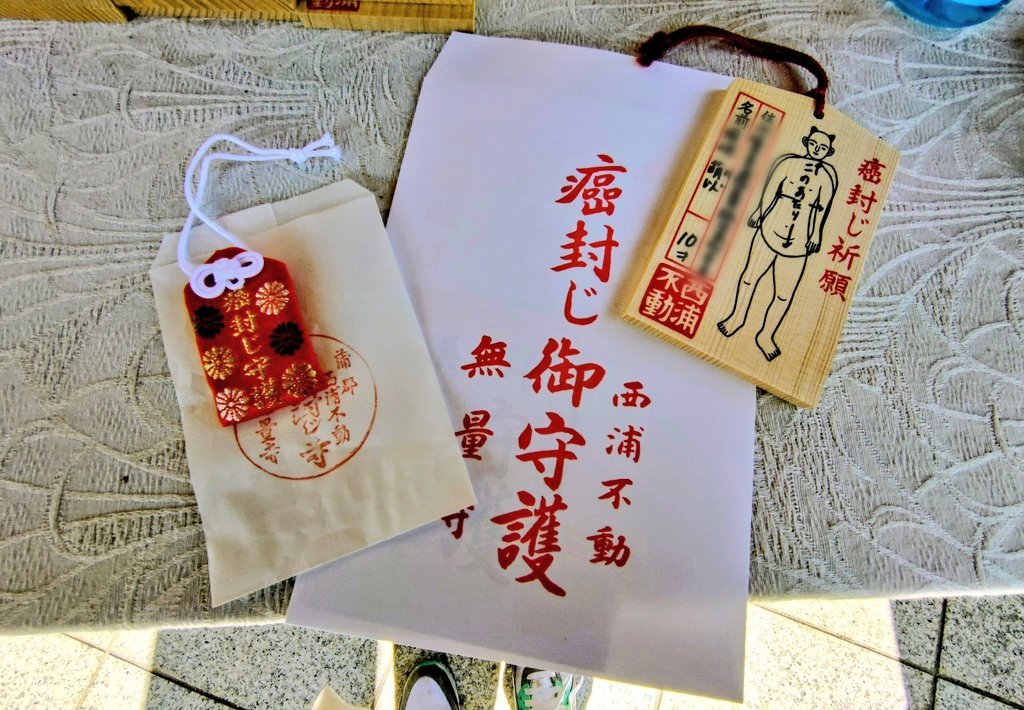 癌封じ守護
蒲郡
浦不動
量寺
西浦不動
癌封じ御守護
無量
癌封じ祈願
このあたり
住
名前
10才
西浦
不動